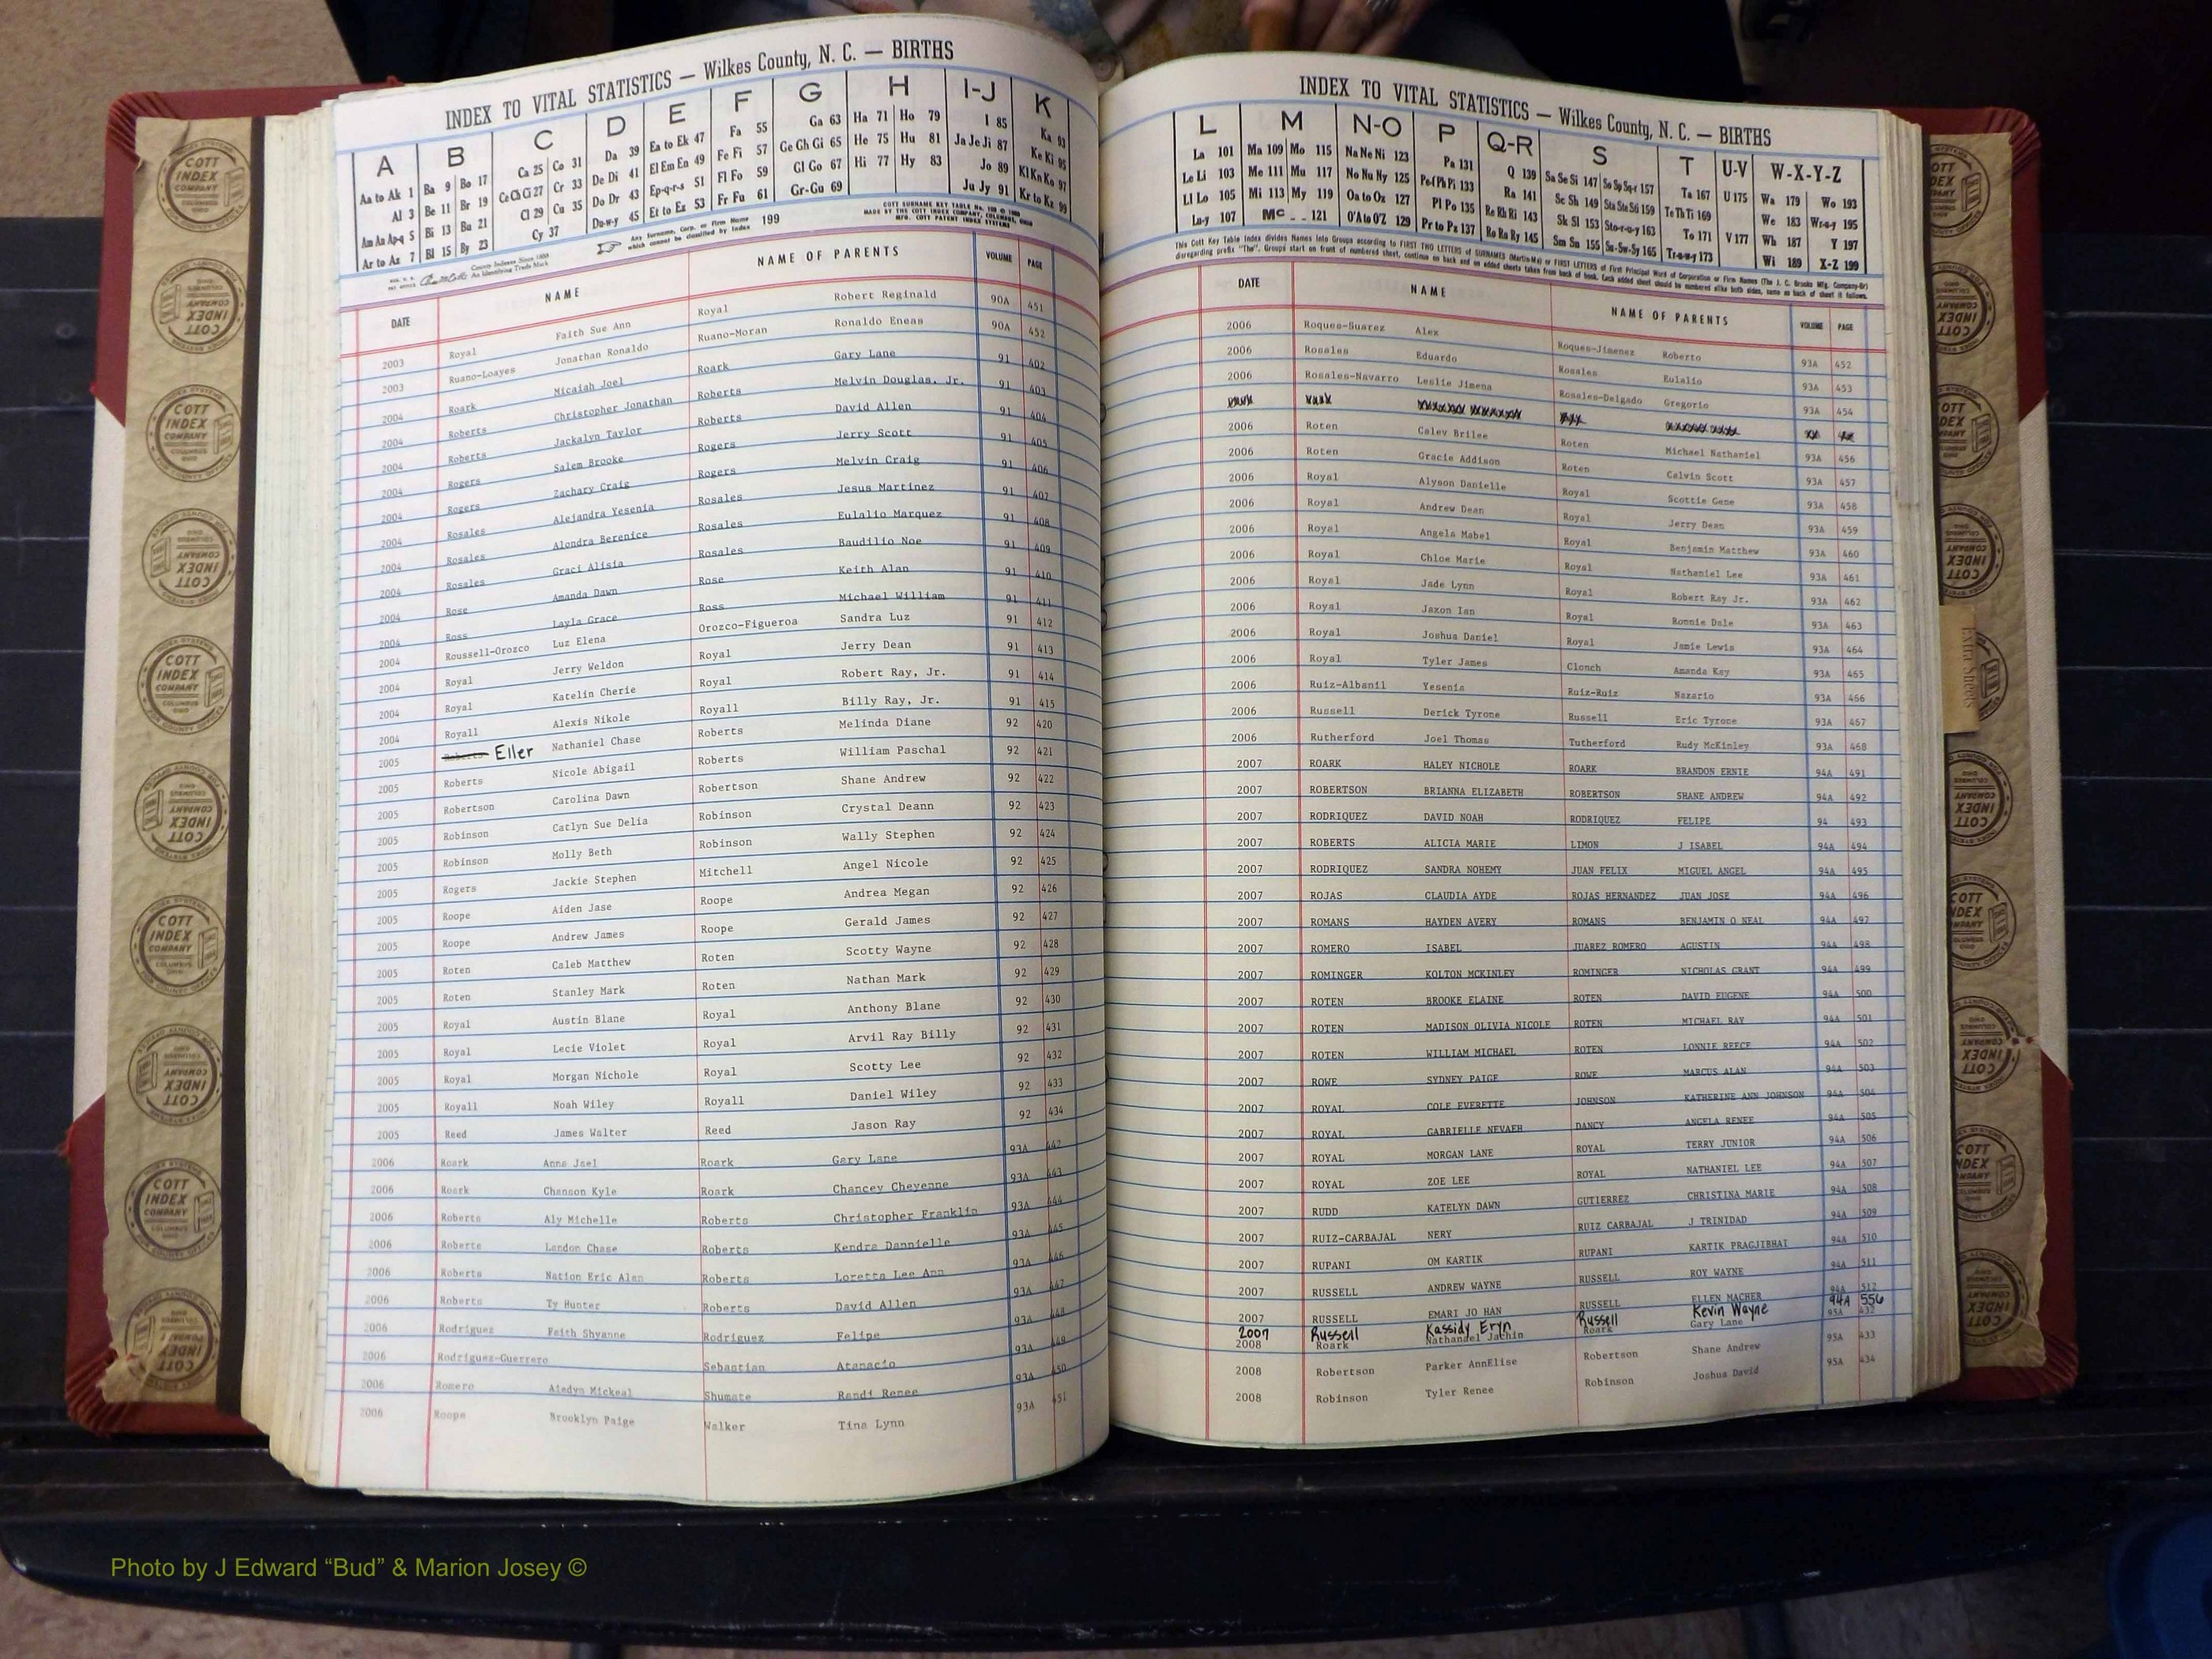 INDEX TO VITAL STATISTICS — Wilkes County, N. C. — BIRTHS
A B C D E F G H I-J K
Aa to Ak 1 Ba 9 Bo 17 Ca 25 Co 31 Da 39 Ea to Ek 47 Fa 55 Ga 63 Ha 71 Ho 79 I 85 Ka 93
Al 3 Be 11 Br 19 Ce Ch Ci 27 Cr 33 De Di 41 El Em En 49 Fe Fi 57 Ge Gh Gi 65 He 75 Hu 81 Ja Je Ji 87 Ke Ki 95
Am An Ap-q 5 Bi 13 Bu 21 Cl 29 Cu 35 Do Dr 43 Ep-q-r-s 51 Fl Fo 59 Gl Go 67 Hi 77 Hy 83 Jo 89 Kl Kn Ko 97
Ar to Az 7 Bl 15 By 23 Cy 37 Du-w-y 45 Et to Ez 53 Fr Fu 61 Gr-Gu 69 Ju Jy 91 Kr to Kz 99
Any Surname, Corp. or Firm Name which cannot be classified by Index 199
COTT SURNAME KEY TABLE
MADE BY THE COTT INDEX COMPANY, COLUMBUS, OHIO
DATE NAME NAME OF PARENTS VOLUME PAGE
2003 Royal Faith Sue Ann Royal Robert Reginald 90A 451
2003 Ruano-Loayes Jonathan Ronaldo Ruano-Moran Ronaldo Eneas 90A 452
2004 Roark Micaiah Joel Roark Gary Lane 91 402
2004 Roberts Christopher Jonathan Roberts Melvin Douglas, Jr. 91 403
2004 Roberts Jackalyn Taylor Roberts David Allen 91 404
2004 Rogers Salem Brooke Rogers Jerry Scott 91 405
2004 Rogers Zachary Craig Rogers Melvin Craig 91 406
2004 Rosales Alejandra Yesenia Rosales Jesus Martinez 91 407
2004 Rosales Alondra Berenice Rosales Eulalio Marquez 91 408
2004 Rosales Graci Alisia Rosales Baudilio Noe 91 409
2004 Rose Amanda Dawn Rose Keith Alan 91 410
2004 Ross Layla Grace Ross Michael William 91 411
2004 Roussell-Orozco Luz Elena Orozco-Figueroa Sandra Luz 91 412
2004 Royal Jerry Weldon Royal Jerry Dean 91 413
2004 Royal Katelin Cherie Royal Robert Ray, Jr. 91 414
2004 Royall Alexis Nikole Royall Billy Ray, Jr. 91 415
2005 Roberts Eller Nathaniel Chase Roberts Melinda Diane 92 420
2005 Roberts Nicole Abigail Roberts William Paschal 92 421
2005 Robertson Carolina Dawn Robertson Shane Andrew 92 422
2005 Robinson Catlyn Sue Delia Robinson Crystal Deann 92 423
2005 Robinson Molly Beth Robinson Wally Stephen 92 424
2005 Rogers Jackie Stephen Mitchell Angel Nicole 92 425
2005 Roope Aiden Jase Roope Andrea Megan 92 426
2005 Roope Andrew James Roope Gerald James 92 427
2005 Roten Caleb Matthew Roten Scotty Wayne 92 428
2005 Roten Stanley Mark Roten Nathan Mark 92 429
2005 Royal Austin Blane Royal Anthony Blane 92 430
2005 Royal Lecie Violet Royal Arvil Ray Billy 92 431
2005 Royal Morgan Nichole Royal Scotty Lee 92 432
2005 Royall Noah Wiley Royall Daniel Wiley 92 433
2005 Reed James Walter Reed Jason Ray 92 434
2006 Roark Anna Jael Roark Gary Lane 93A 442
2006 Roark Chanson Kyle Roark Chancey Cheyenne 93A 443
2006 Roberts Aly Michelle Roberts Christopher Franklin 93A 444
2006 Roberts Landon Chase Roberts Kendra Dannielle 93A 445
2006 Roberts Nation Eric Alan Roberts Loretta Lee Ann 93A 446
2006 Roberts Ty Hunter Roberts David Allen 93A 447
2006 Rodriguez Faith Shyanne Rodriguez Felipe 93A 448
2006 Rodriguez-Guerrero Sebastian Atanacio 93A 449
2006 Romero Aiedyn Mickeal Shumate Randi Renee 93A 450
2006 Roope Brooklyn Paige Walker Tina Lynn 93A 451
INDEX TO VITAL STATISTICS — Wilkes County, N. C. — BIRTHS
L M N-O P Q-R S T U-V W-X-Y-Z
La 101 Ma 109 Mo 115 Na Ne Ni 123 Pa 131 Q 139 Sa Se Si 147 So Sp Sq-r 157 Ta 167 U 175 Wa 179 Wo 193
Le Li 103 Me 111 Mu 117 No Nu Ny 125 Pe-f Ph Pi 133 Ra 141 Sc Sh 149 Sta Ste Sti 159 Te Th Ti 169 We 183 Wr-u-y 195
Ll Lo 105 Mi 113 My 119 Oa to Oz 127 Pl Po 135 Re Rh Ri 143 Sk Sl 153 Sto-r-u-y 163 To 171 V 177 Wh 187 Y 197
Lu-y 107 Mc 121 O'A to O'Z 129 Pr to Pz 137 Ro Ru Ry 145 Sm Sn 155 Su-Sw-Sy 165 Tr-u-w-y 173 Wi 189 X-Z 199
This Cott Key Table Index divides Names into Groups according to FIRST TWO LETTERS of SURNAMES (Martin-Ma) or FIRST LETTERS of First Principal Word of Corporation or Firm Names (The J. C. Brooks Mfg. Company-Br)
disregarding prefix "The". Groups start on front of numbered sheet, continue on back and on added sheets taken from back of book. Each added sheet should be numbered alike both sides, same as back of sheet it follows.
DATE NAME NAME OF PARENTS VOLUME PAGE
2006 Roques-Suarez Alex Roques-Jimenez Roberto 93A 452
2006 Rosales Eduardo Rosales Eulalio 93A 453
2006 Rosales-Navarro Leslie Jimena Rosales-Delgado Gregorio 93A 454
2006 Roten Caley Brilee Roten Michael Nathaniel 93A 456
2006 Roten Gracie Addison Roten Calvin Scott 93A 457
2006 Royal Alyson Danielle Royal Scottie Gene 93A 458
2006 Royal Andrew Dean Royal Jerry Dean 93A 459
2006 Royal Angela Mabel Royal Benjamin Matthew 93A 460
2006 Royal Chloe Marie Royal Nathaniel Lee 93A 461
2006 Royal Jade Lynn Royal Robert Ray Jr. 93A 462
2006 Royal Jaxon Ian Royal Ronnie Dale 93A 463
2006 Royal Joshua Daniel Royal Jamie Lewis 93A 464
2006 Royal Tyler James Clonch Amanda Kay 93A 465
2006 Ruiz-Albanil Yesenia Ruiz-Ruiz Nazario 93A 466
2006 Russell Derick Tyrone Russell Eric Tyrone 93A 467
2006 Rutherford Joel Thomas Tutherford Rudy McKinley 93A 468
2007 ROARK HALEY NICHOLE ROARK BRANDON ERNIE 94A 491
2007 ROBERTSON BRIANNA ELIZABETH ROBERTSON SHANE ANDREW 94A 492
2007 RODRIQUEZ DAVID NOAH RODRIQUEZ FELIPE 94 493
2007 ROBERTS ALICIA MARIE LIMON J ISABEL 94A 494
2007 RODRIQUEZ SANDRA NOHEMY JUAN FELIX MIGUEL ANGEL 94A 495
2007 ROJAS CLAUDIA AYDE ROJAS HERNANDEZ JUAN JOSE 94A 496
2007 ROMANS HAYDEN AVERY ROMANS BENJAMIN O NEAL 94A 497
2007 ROMERO ISABEL JUAREZ ROMERO AGUSTIN 94A 498
2007 ROMINGER KOLTON MCKINLEY ROMINGER NICHOLAS GRANT 94A 499
2007 ROTEN BROOKE ELAINE ROTEN DAVID EUGENE 94A 500
2007 ROTEN MADISON OLIVIA NICOLE ROTEN MICHAEL RAY 94A 501
2007 ROTEN WILLIAM MICHAEL ROTEN LONNIE REECE 94A 502
2007 ROWE SYDNEY PAIGE ROWE MARCUS ALAN 94A 503
2007 ROYAL COLE EVERETTE JOHNSON KATHERINE ANN JOHNSON 94A 504
2007 ROYAL GABRIELLE NEVAEH DANCY ANGELA RENEE 94A 505
2007 ROYAL MORGAN LANE ROYAL TERRY JUNIOR 94A 506
2007 ROYAL ZOE LEE ROYAL NATHANIEL LEE 94A 507
2007 RUDD KATELYN DAWN GUTIERREZ CHRISTINA MARIE 94A 508
2007 RUIZ-CARBAJAL NERY RUIZ CARBAJAL J TRINIDAD 94A 509
2007 RUPANI OM KARTIK RUPANI KARTIK PRAGJIBHAI 94A 510
2007 RUSSELL ANDREW WAYNE RUSSELL ROY WAYNE 94A 511
2007 RUSSELL EMARI JO HAN RUSSELL ELLEN MACHER 94A 512
2007 Russell Kassidy Eryn Russell Kevin Wayne 94A 556
2008 Roark Nathaniel Jathin Roark Gary Lane 95A 432
2008 Robertson Parker AnnElise Robertson Shane Andrew 95A 433
2008 Robinson Tyler Renee Robinson Joshua David 95A 434
COTT INDEX COMPANY COLUMBUS OHIO
Extra Sheets
Photo by J Edward “Bud” & Marion Josey ©